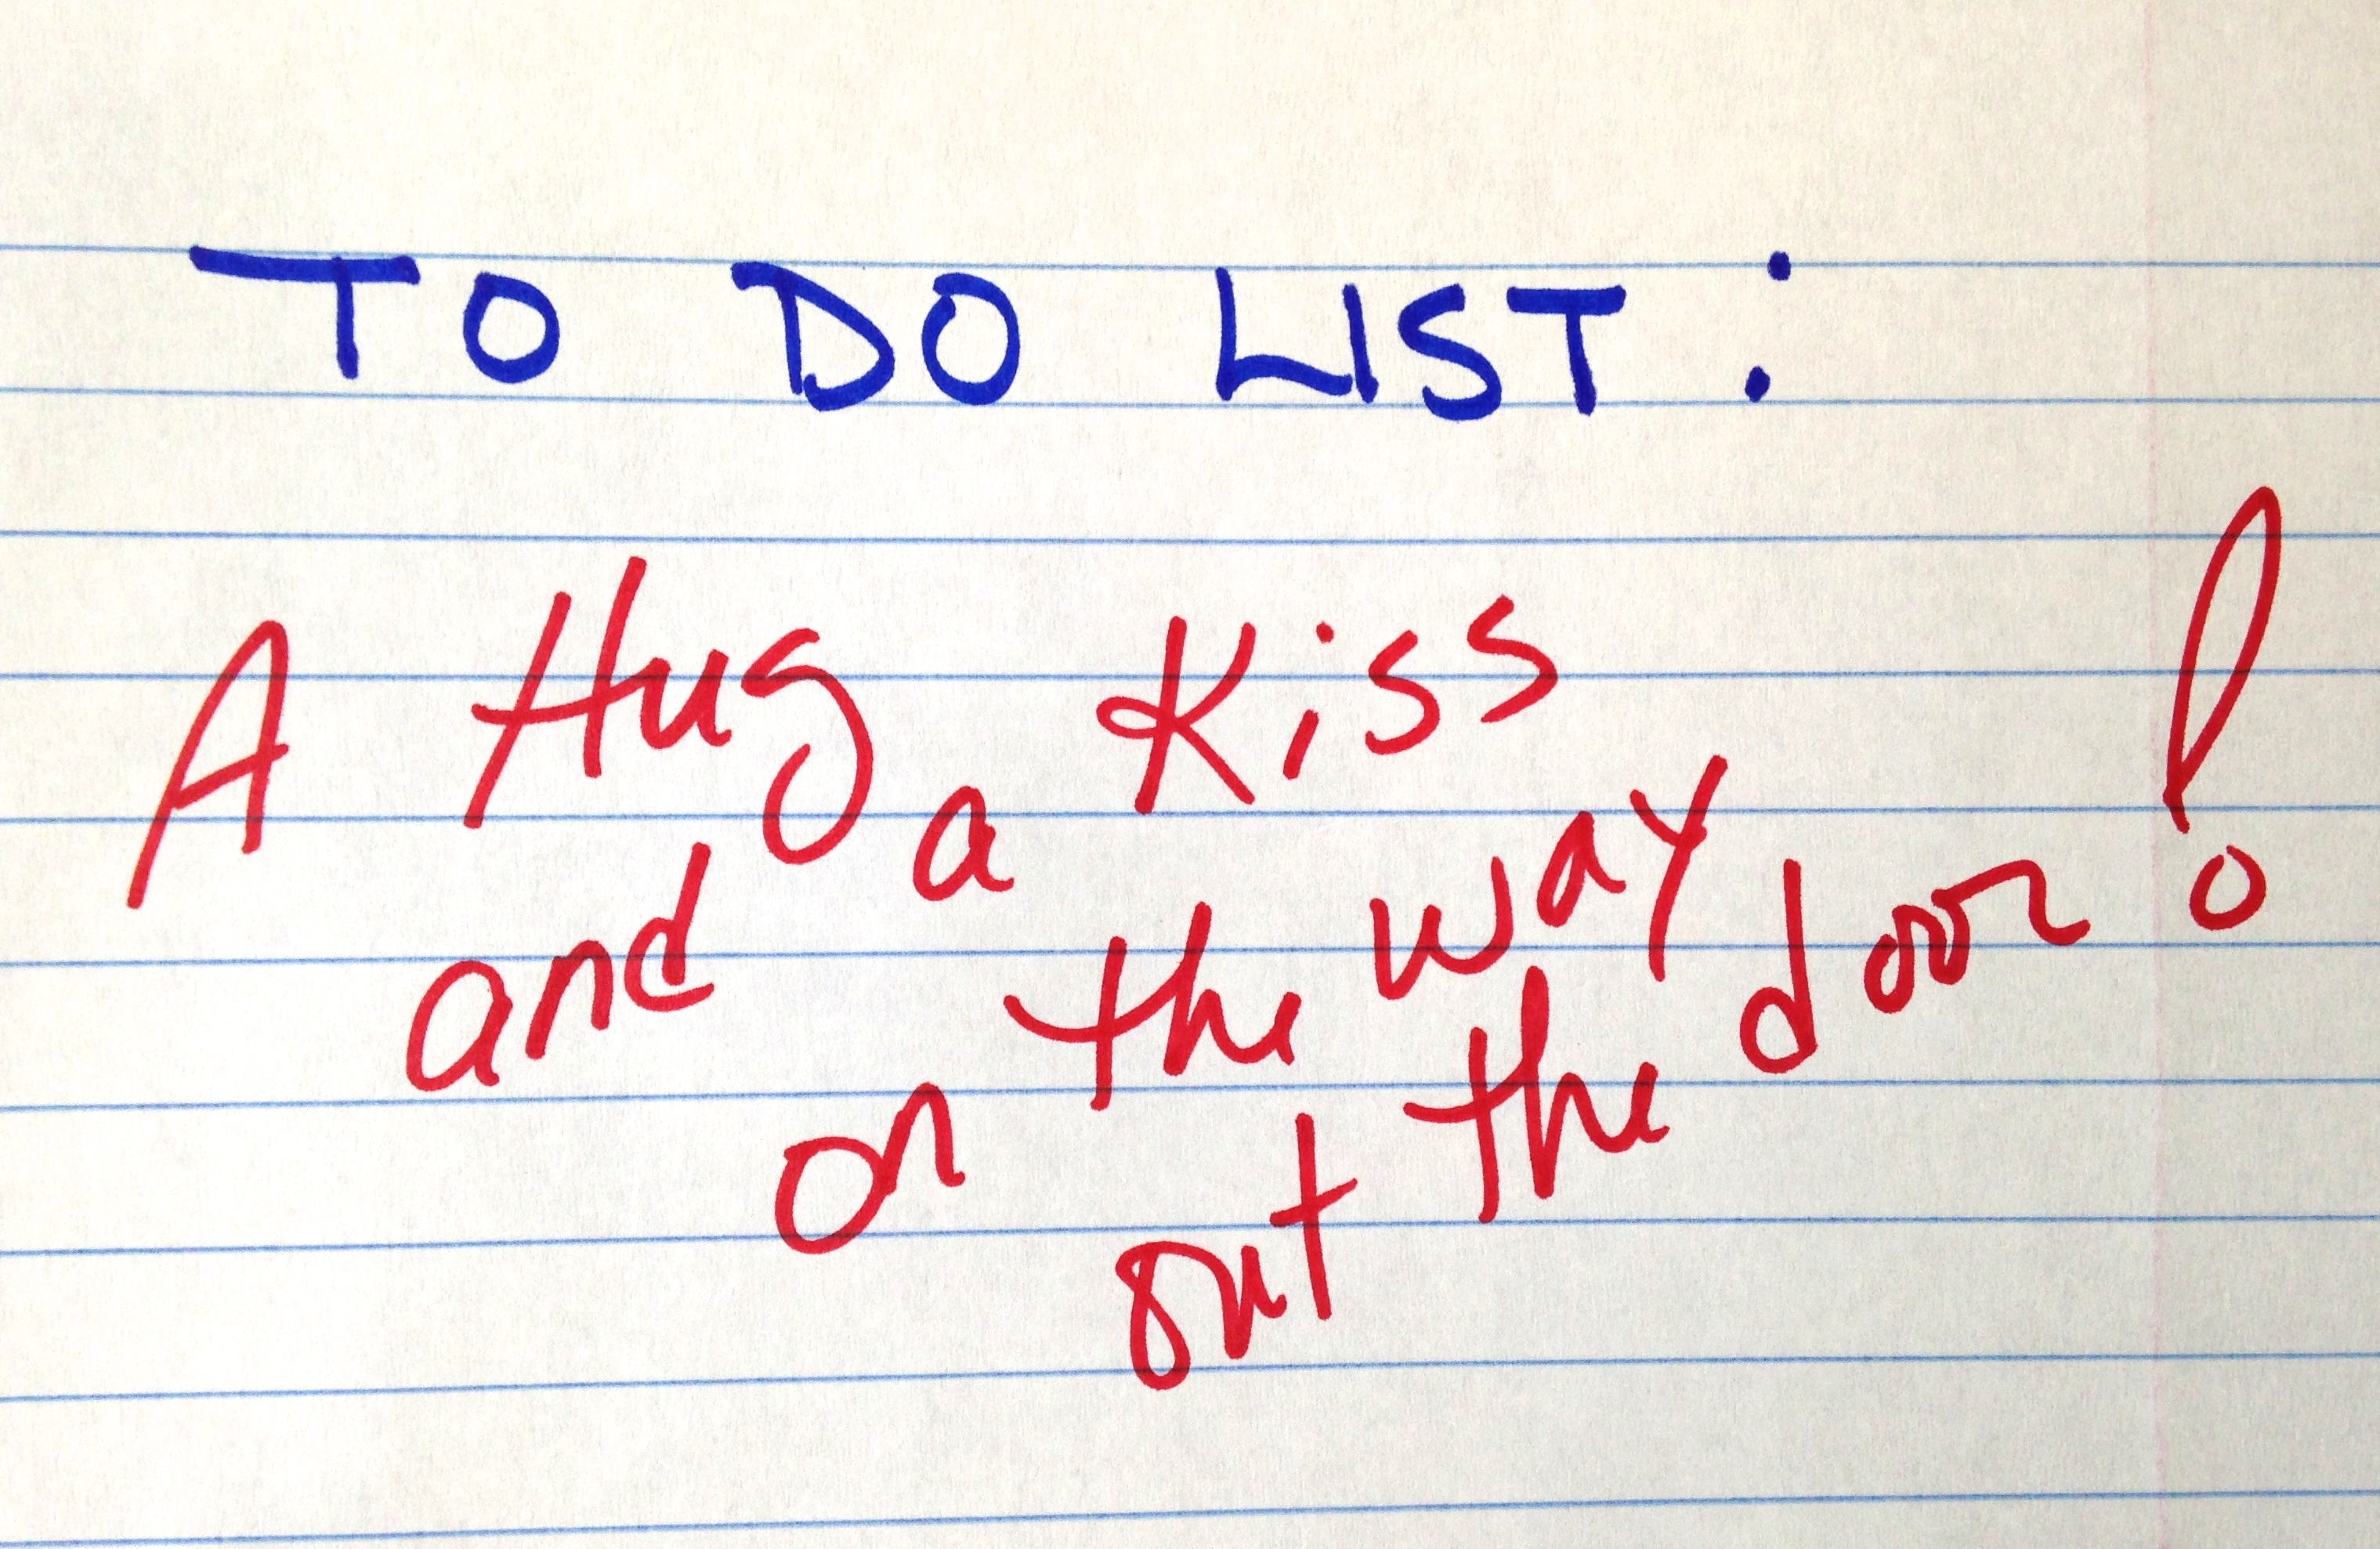 TO DO LIST:
A Hug
and a Kiss
on the way
out the door!